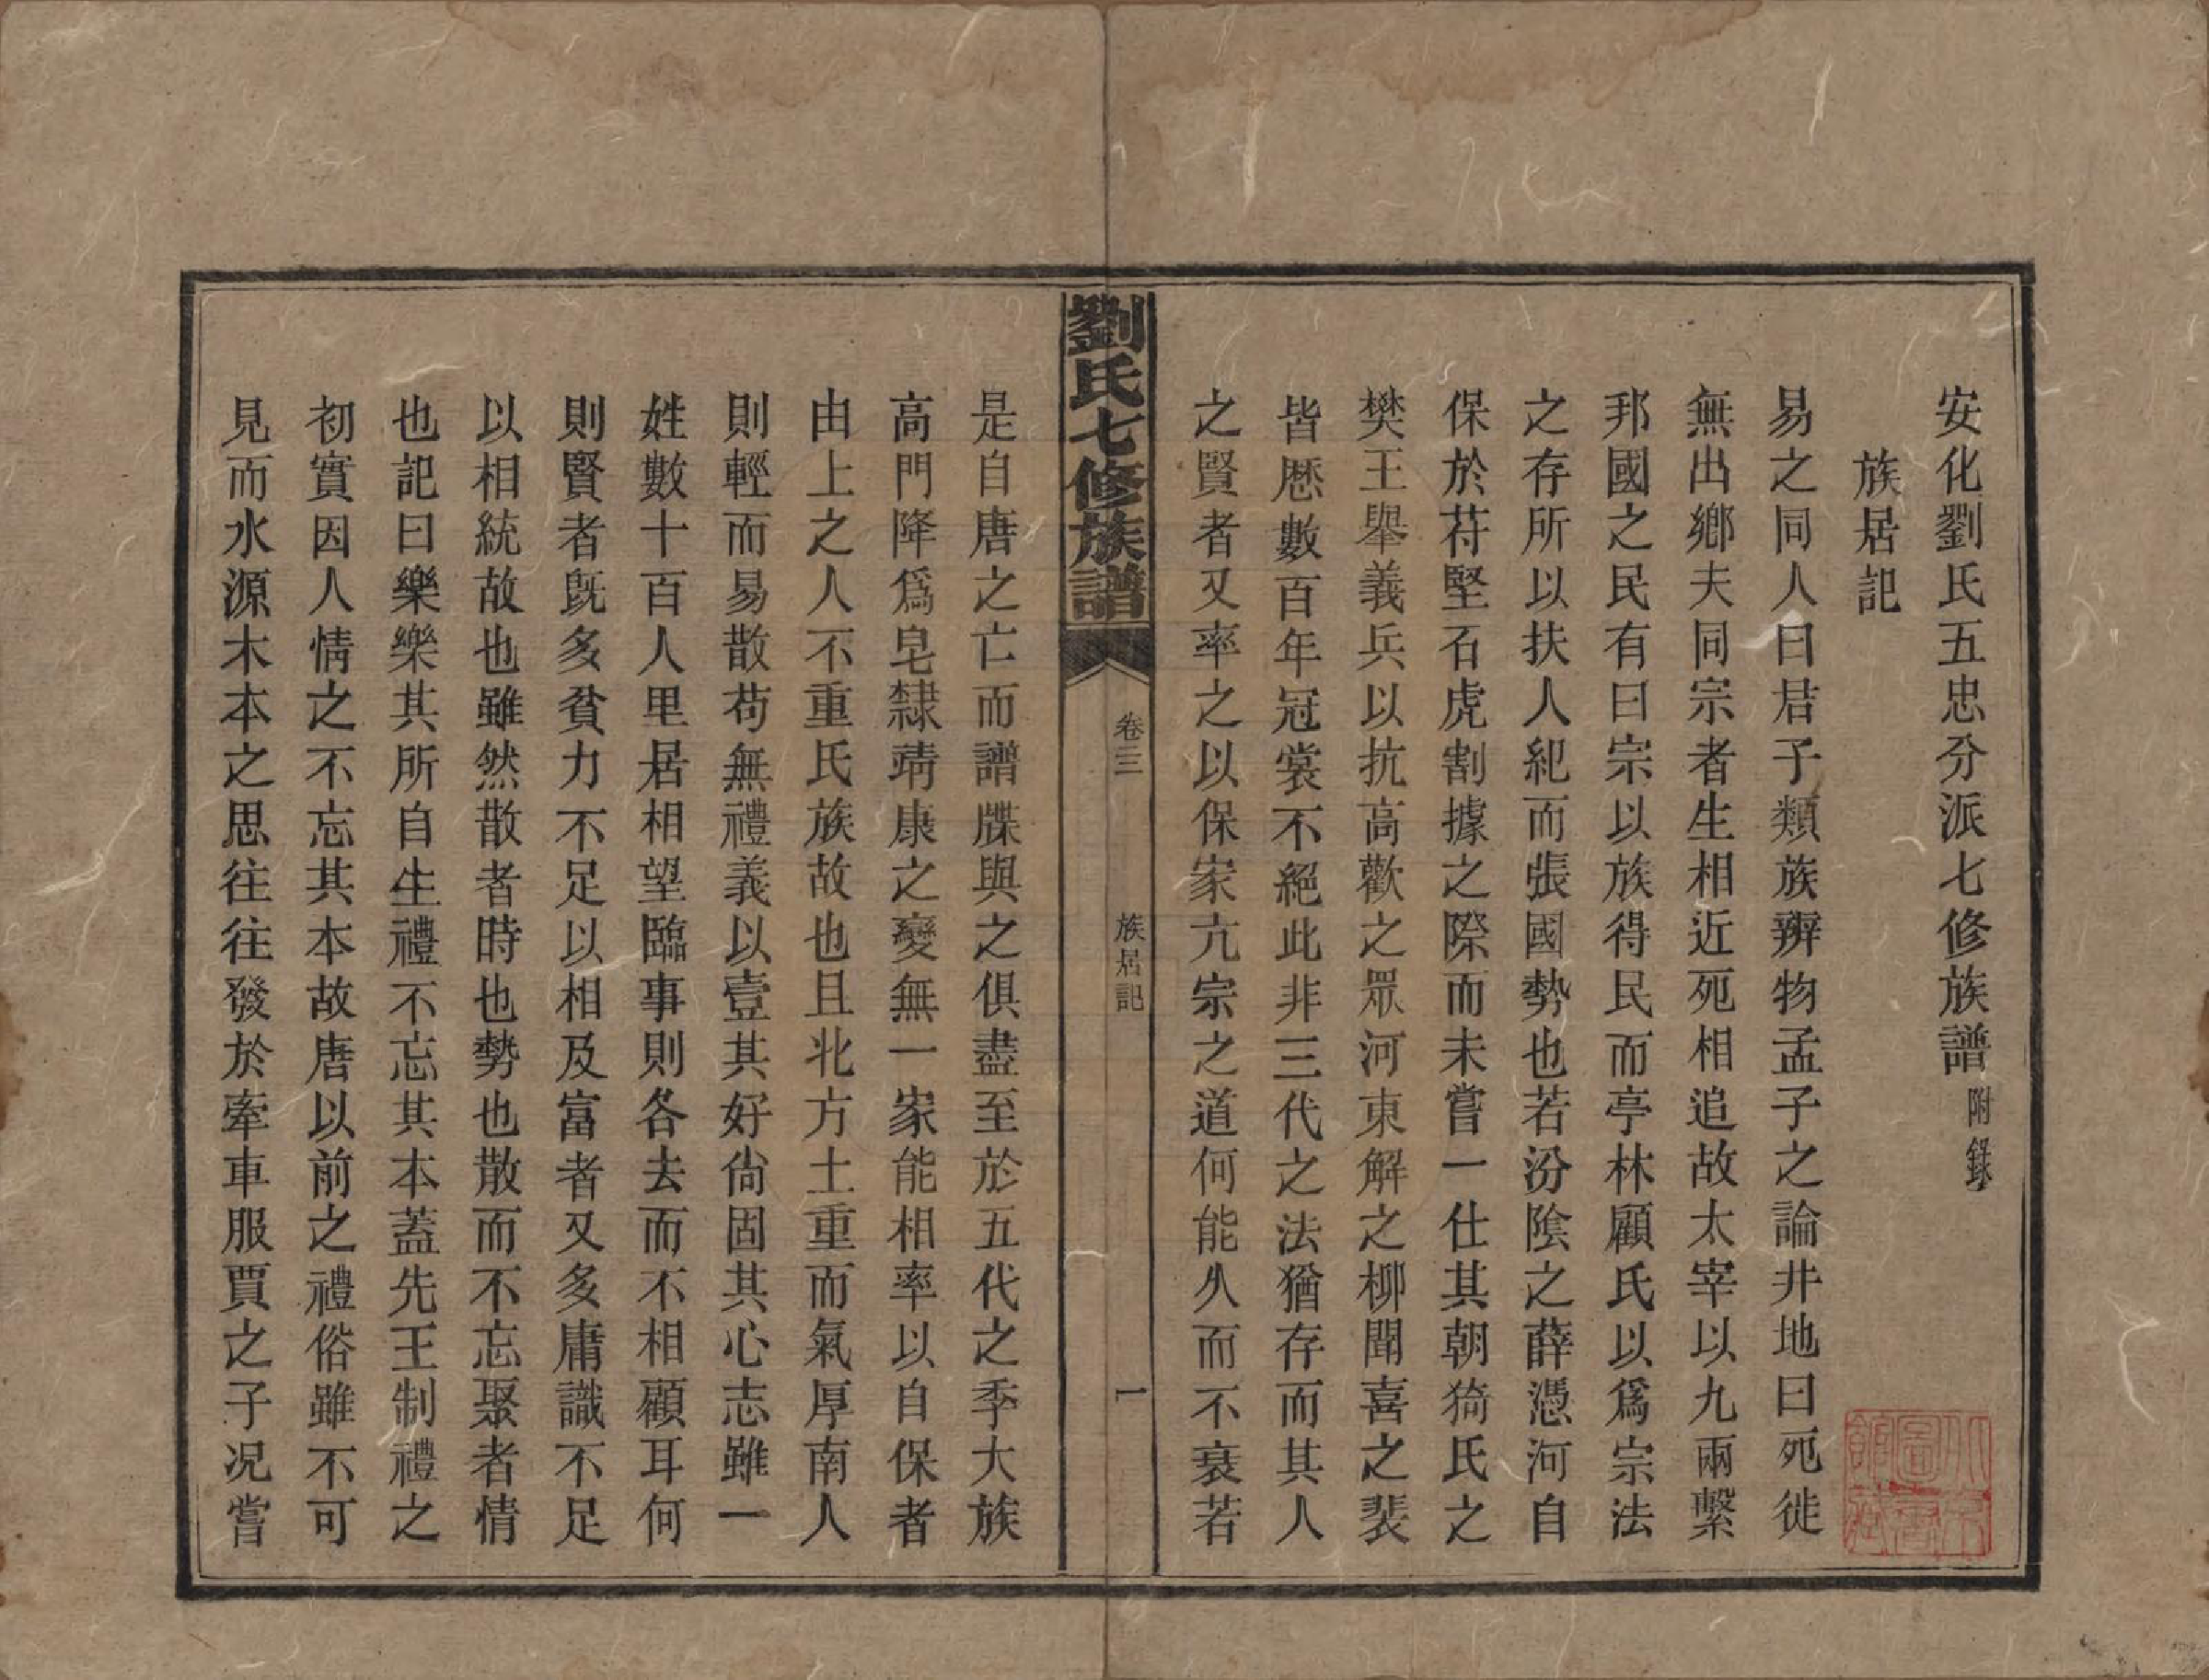 安化劉氏五忠分派七修族譜附錄
族居記
易之同人曰君子類族辨物孟子之論井地曰死徙
無出鄉夫同宗者生相近死相追故太宰以九兩繫
邦國之民有曰宗以族得民而亭林顧氏以爲宗法
之存所以扶人紀而張國勢也若汾陰之薛憑河自
保於苻堅石虎割據之際而未嘗一仕其朝猗氏之
樊王舉義兵以抗高歡之眾河東解之柳聞喜之裴
皆歷數百年冠裳不絕此非三代之法猶存而其人
之賢者又率之以保家亢宗之道何能久而不衰若
劉氏七修族譜
卷三
族居記
一
是自唐之亡而譜牒與之俱盡至於五代之季大族
高門降爲皂隸靖康之變無一家能相率以自保者
由上之人不重氏族故也且北方土重而氣厚南人
則輕而易散苟無禮義以壹其好尙固其心志雖一
姓數十百人里居相望臨事則各去而不相顧耳何
則賢者旣多貧力不足以相及富者又多庸識不足
以相統故也雖然散者時也勢也散而不忘聚者情
也記曰樂樂其所自生禮不忘其本蓋先王制禮之
初實因人情之不忘其本故唐以前之禮俗雖不可
見而水源木本之思往往發於牽車服賈之子况嘗